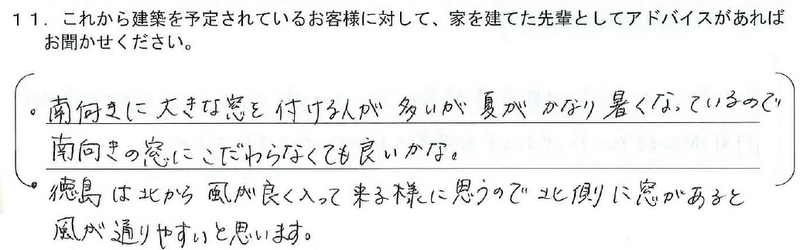 11．これから建築を予定されているお客様に対して、家を建てた先輩としてアドバイスがあれば
お聞かせください。
・南向きに大きな窓を付ける人が多いが夏がかなり暑くなっているので
南向きの窓にこだわらなくても良いかな。
・徳島は北から風が良く入って来る様に思うので北側に窓があると
風が通りやすいと思います。